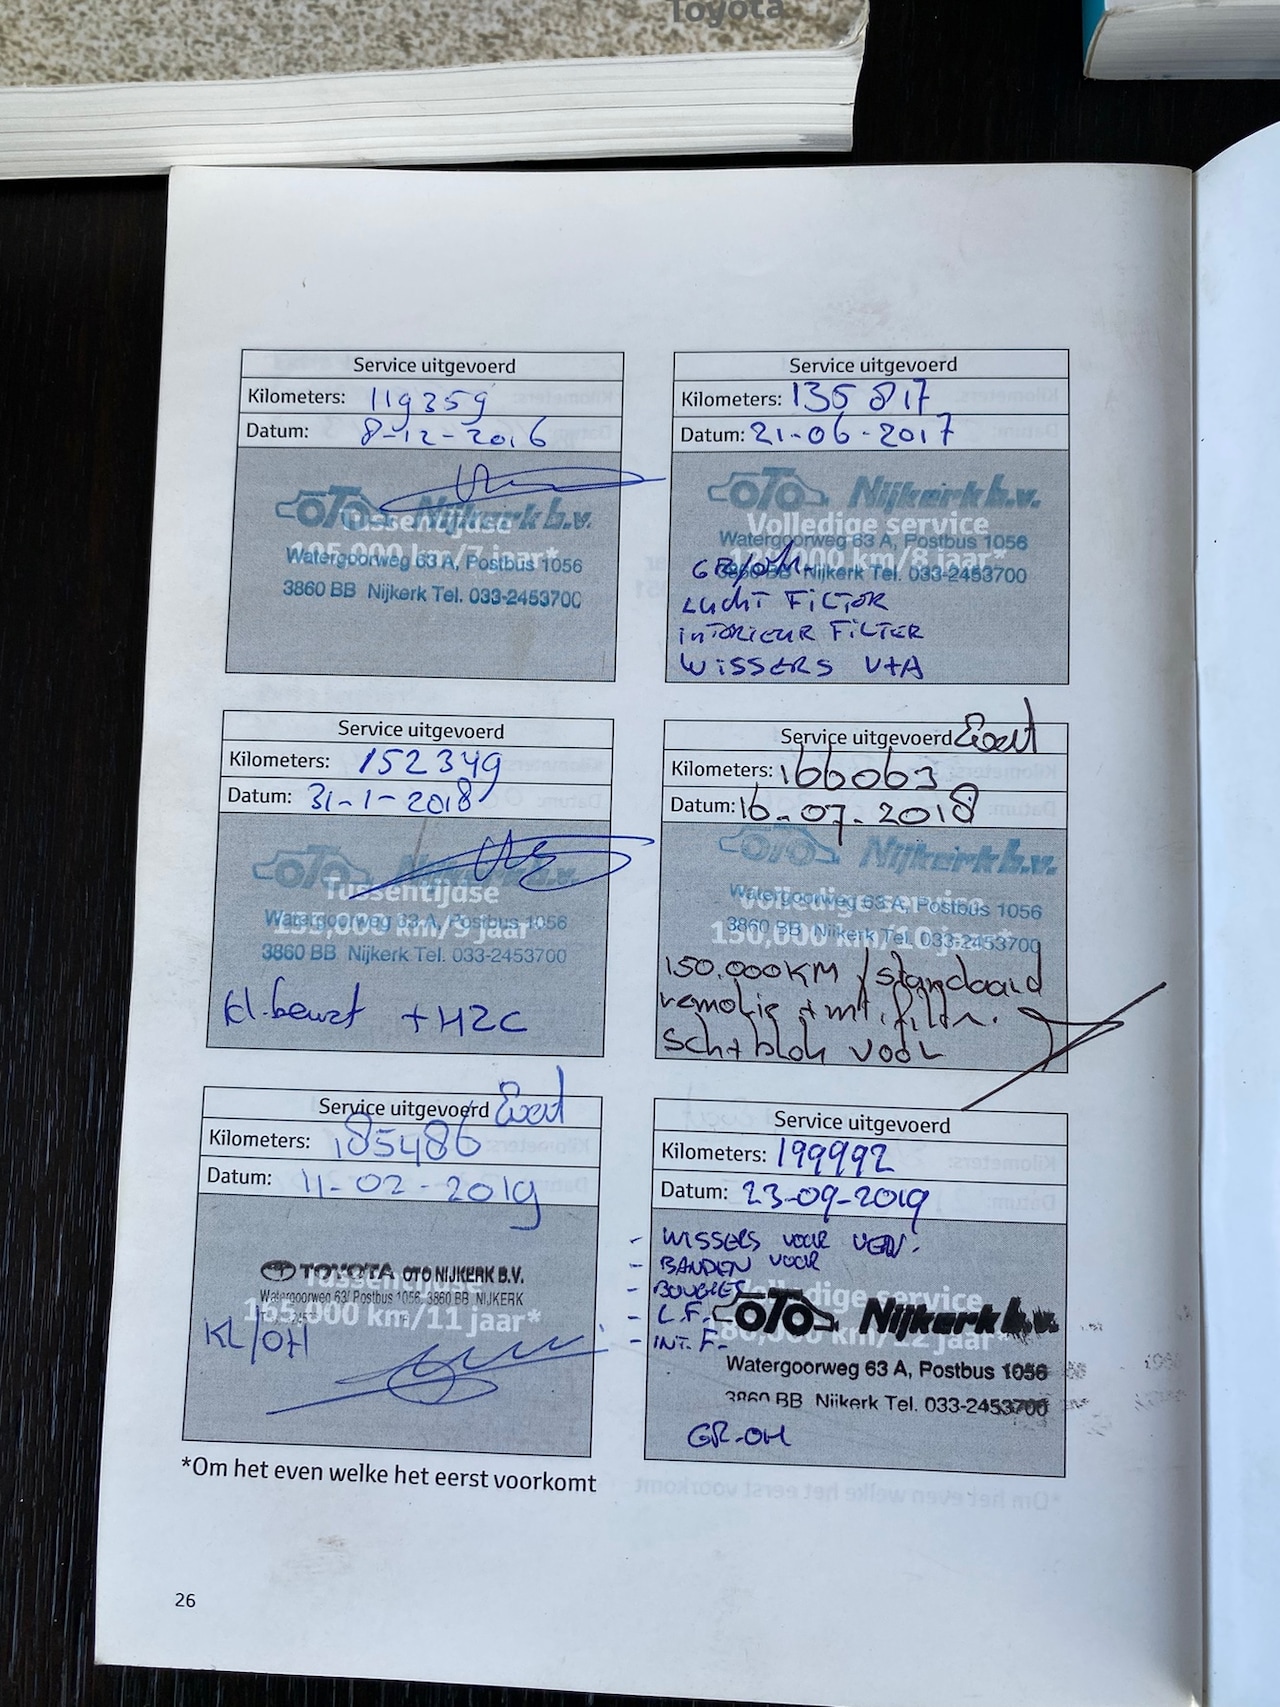 Toyota
Service uitgevoerd
Kilometers: 119359
Datum: 8-12-2016
OTO Nijkerk b.v.
Tussentijdse
105,000 km/7 jaar*
Watergoorweg 63 A, Postbus 1056
3860 BB Nijkerk Tel. 033-2453700
Service uitgevoerd
Kilometers: 135817
Datum: 21-06-2017
OTO Nijkerk b.v.
Volledige service
Watergoorweg 63 A, Postbus 1056
120,000 km/8 jaar*
3860 BB Nijkerk Tel. 033-2453700
GR/OH.
LUCHT FILTER
INTERIEUR FILTER
WISSERS V+A
Service uitgevoerd
Kilometers: 152349
Datum: 31-1-2018
OTO Nijkerk b.v.
Tussentijdse
Watergoorweg 63 A, Postbus 1056
135,000 km/9 jaar*
3860 BB Nijkerk Tel. 033-2453700
kl.beurt + H2C
Service uitgevoerd Evert
Kilometers: 166063
Datum: 16-07-2018
OTO Nijkerk b.v.
Volledige service
Watergoorweg 63 A, Postbus 1056
150,000 km/10 jaar*
3860 BB Nijkerk Tel. 033-2453700
150.000KM / standaard
remolie + int.filter.
Sch+blok voor
Service uitgevoerd Evert
Kilometers: 185486
Datum: 11-02-2019
TOYOTA OTO NIJKERK B.V.
Tussentijdse
Watergoorweg 63/ Postbus 1056, 3860 BB NIJKERK
165,000 km/11 jaar*
KL/OH
Service uitgevoerd
Kilometers: 199992
Datum: 23-09-2019
- WISSERS VOOR
- BANDEN VOOR
- BOUGIES
- L.F.
- INT. F.
Volledige service
OTO Nijkerk b.v.
180,000 km/12 jaar*
Watergoorweg 63 A, Postbus 1056
3860 BB Nijkerk Tel. 033-2453700
GR-OH
*Om het even welke het eerst voorkomt
26